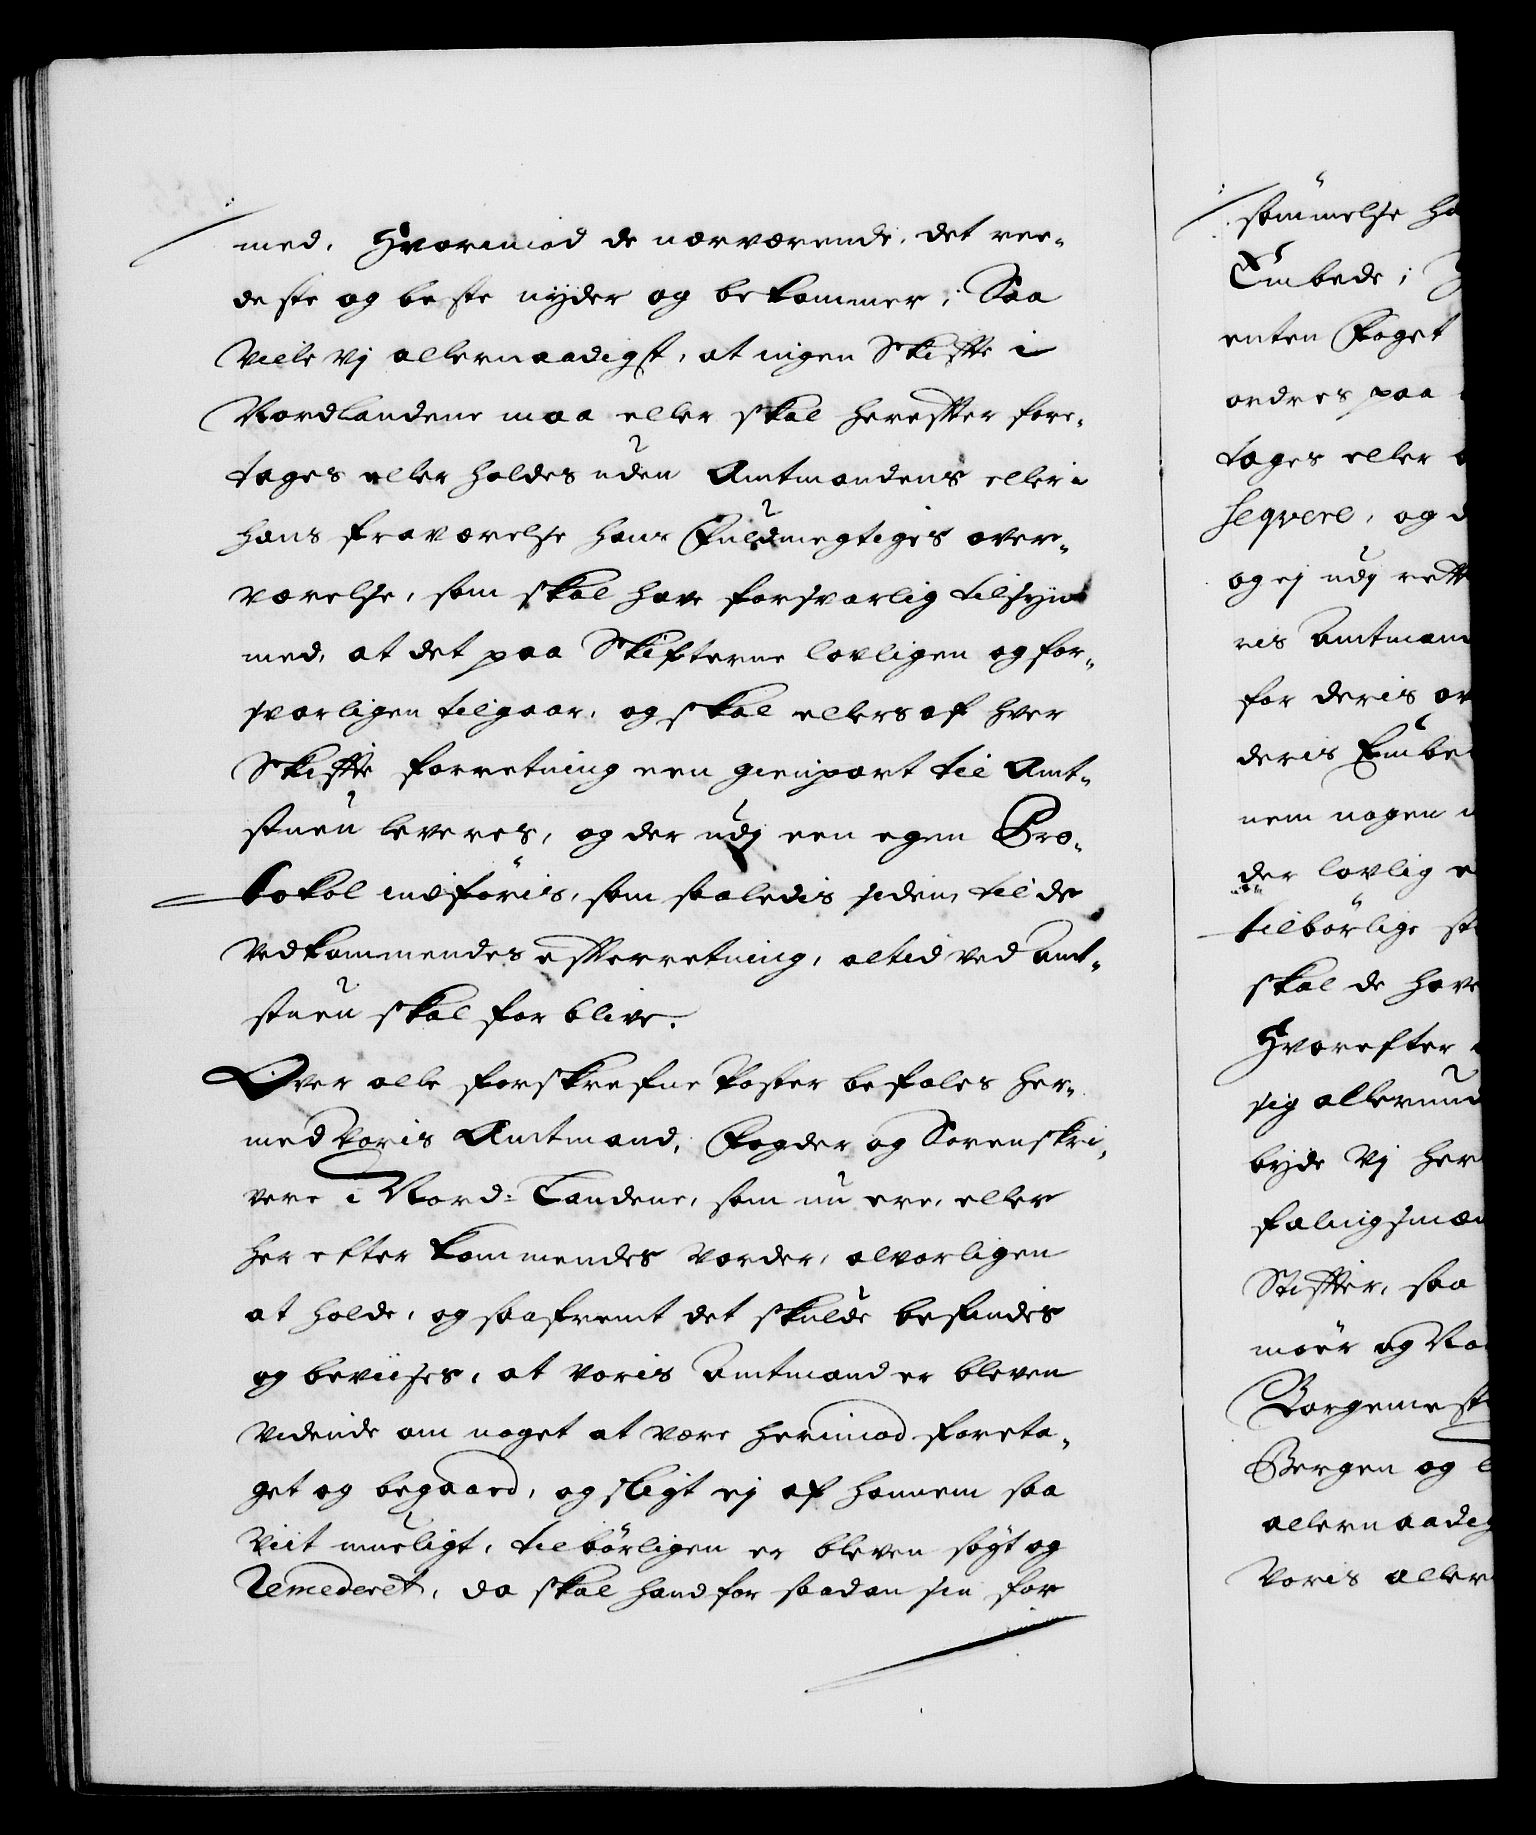 med. Hvorimod de nærværende, det ree-
deste og beste nyder og bekommer; Saa
Ville Vj allernaadigst, at ingen Skiffte i
Nordlandene maa eller skal hereffter fore-
tages eller holdes uden Amtmandens eller i
hans fraværelse hans Fuldmegtiges over-
værelse, som skal have forsvarlig tilsyn
med, at det paa Skifterne lovligen og for-
svarligen tilgaar, og skal ellers af hver
Skiffte forretning een gienpart til Amt-
stuen leveres, og der udj een egen Pro-
tokol indføris, som saaledis siden, til de
Vedkommendes effterretning, altid ved Amt-
stuen skal forblive.
Over alle forskrefne Poster befales her-
med Voris Amtmand, Fogder og Sorenskri-
vere i Nord-Landene, som nu ere, eller
her efter kommendes vorder, alvorligen
at holde, og saafremt det skulde befindes
og beviises, at voris Amtmand er bleven
vidende om noget at være herimod foreta-
get og begaaed, og sligt ej af hannem saa
Viit mueligt, tilbørligen er bleven søgt og
Remederet, da skal hand for saadan sin for
sømmelse ha
Embede;
enten Foget
ordres paa
tages eller
seqvere, og d
og ej udj rette
ris Amtmand
for deris ov
deris Embe
nem nogen
der lovlig
tilbørlige st
skal de have
Hvorefter
sig allerund
byde Vj her
falingsmæn
Stiffter, saa
møer og No
Borgemest
Bergen og
allernaadig
Voris aller